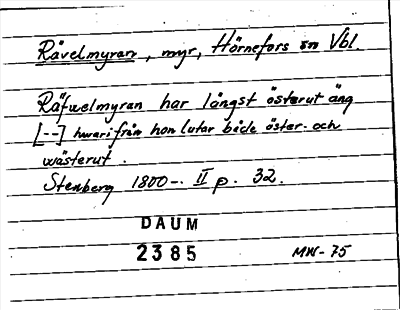 Rävelmyran, myr, Hörnefors sn Vbl
Räfwelmyran har längst österut äng
[--] hwarifrån hon lutar både öster- och
wästerut.
Stenberg 1800-. II p. 32.
DAUM
2385
MW-75